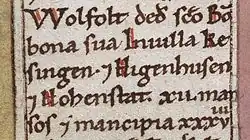 Wolfolt ded sco Bo
bona sua In uilla Ke
singen. ⁊ Nigenhusen
⁊ Hohenstat. xii. man
sos ⁊ mancipia xxxvi